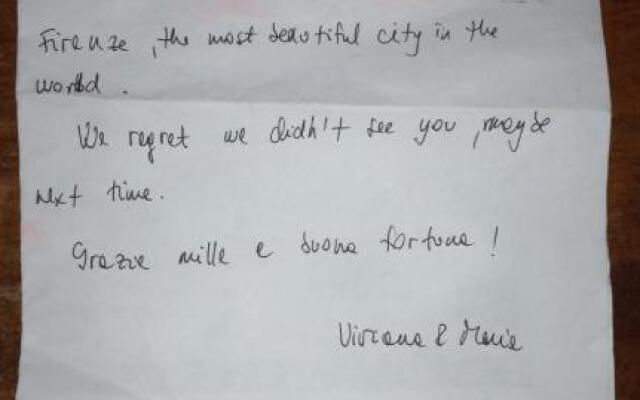 Firenze, the most beautiful city in the
world.
We regret we didn't see you, maybe
next time.
Grazie mille e buona fortuna!
Viviana & Maria